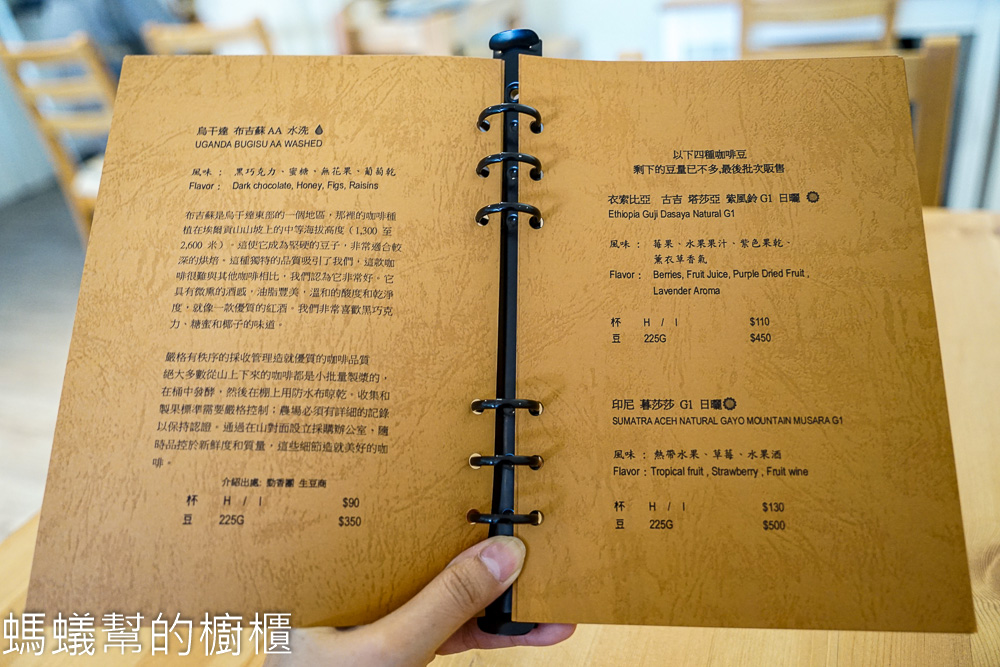 烏干達 布吉蘇 AA 水洗
UGANDA BUGISU AA WASHED
風味： 黑巧克力、蜜糖、無花果、葡萄乾
Flavor： Dark chocolate, Honey, Figs, Raisins
布吉蘇是烏干達東部的一個地區，那裡的咖啡種
植在埃爾貢山山坡上的中等海拔高度（1,300 至
2,600 米）。這使它成為堅硬的豆子，非常適合較
深的烘培。這種獨特的品質吸引了我們，這款咖
啡很難與其他咖啡相比，我們認為它非常好。它
具有微熏的酒感，油脂豐美，溫和的酸度和乾淨
度，就像一款優質的紅酒。我們非常喜歡黑巧克
力、糖蜜和椰子的味道。
嚴格有秩序的採收管理造就優質的咖啡品質
絕大多數從山上下來的咖啡都是小批量製漿的，
在桶中發酵，然後在棚上用防水布晾乾。收集和
製果標準需要嚴格控制；農場必須有詳細的記錄
以保持認證。通過在山對面設立採購辦公室，隨
時品控於新鮮度和質量，這些細節造就美好的咖
啡。
介紹出處: 勤香團 生豆商
杯 H / I $90
豆 225G $350
以下四種咖啡豆
剩下的豆量已不多,最後批次販售
衣索比亞 古吉 塔莎亞 紫風鈴 G1 日曬
Ethiopia Guji Dasaya Natural G1
風味： 莓果、水果果汁、紫色果乾、
薰衣草香氣
Flavor： Berries, Fruit Juice, Purple Dried Fruit ,
Lavender Aroma
杯 H / I $110
豆 225G $450
印尼 暮莎莎 G1 日曬
SUMATRA ACEH NATURAL GAYO MOUNTAIN MUSARA G1
風味： 熱帶水果、草莓、水果酒
Flavor：Tropical fruit , Strawberry , Fruit wine
杯 H / I $130
豆 225G $500
螞蟻幫的櫥櫃